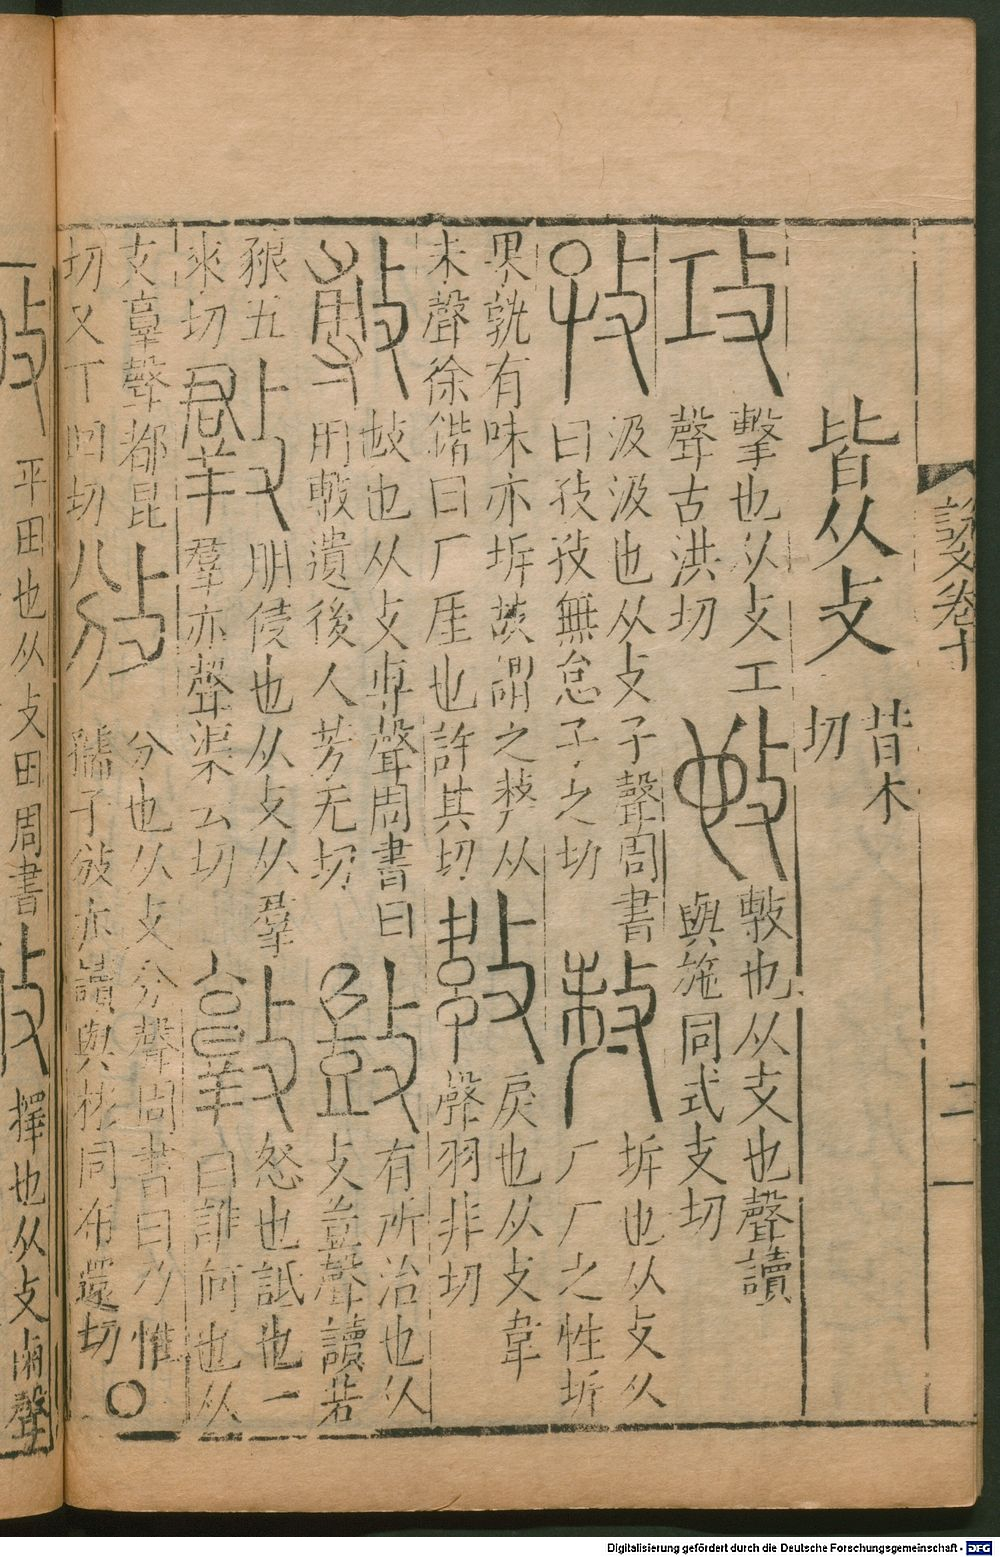 說文卷十
二一
皆从攴
昔木
切
攻
擊也从攴工
聲古洪切
𢻱
敷也从攴也聲讀
與施同式支切
孜
汲汲也从攴子聲周書
曰孜孜無怠子之切
𠩺
坼也从攴从
厂厂之性坼
果孰有味亦坼故謂之𠩺从
未聲徐鍇曰厂厓也許其切
戾也从攴韋
聲羽非切
敷
𢾭也从攴尃聲周書曰
用敷遺後人芳无切
敳
有所治也从
攴豈聲讀若
豤五
來切
朋侵也从攴从羣
羣亦聲渠云切
敦
怒也詆也一
曰誰何也从
攴𦎫聲都昆
切又丁回切
攽
分也从攴分聲周書曰乃惟
孺子攽亦讀與彬同布還切
○
平田也从攴田周書
擇也从攴聲
Digitalisierung gefördert durch die Deutsche Forschungsgemeinschaft - DFG